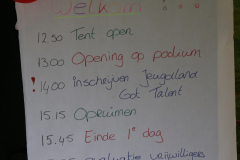 Welkom
12.30 Tent open
13.00 Opening op podium
! 14.00 inschrijven Jeugdland
Got Talent
15.15 Opruimen
15.45 Einde 1e dag
evaluatie vrijwilligers